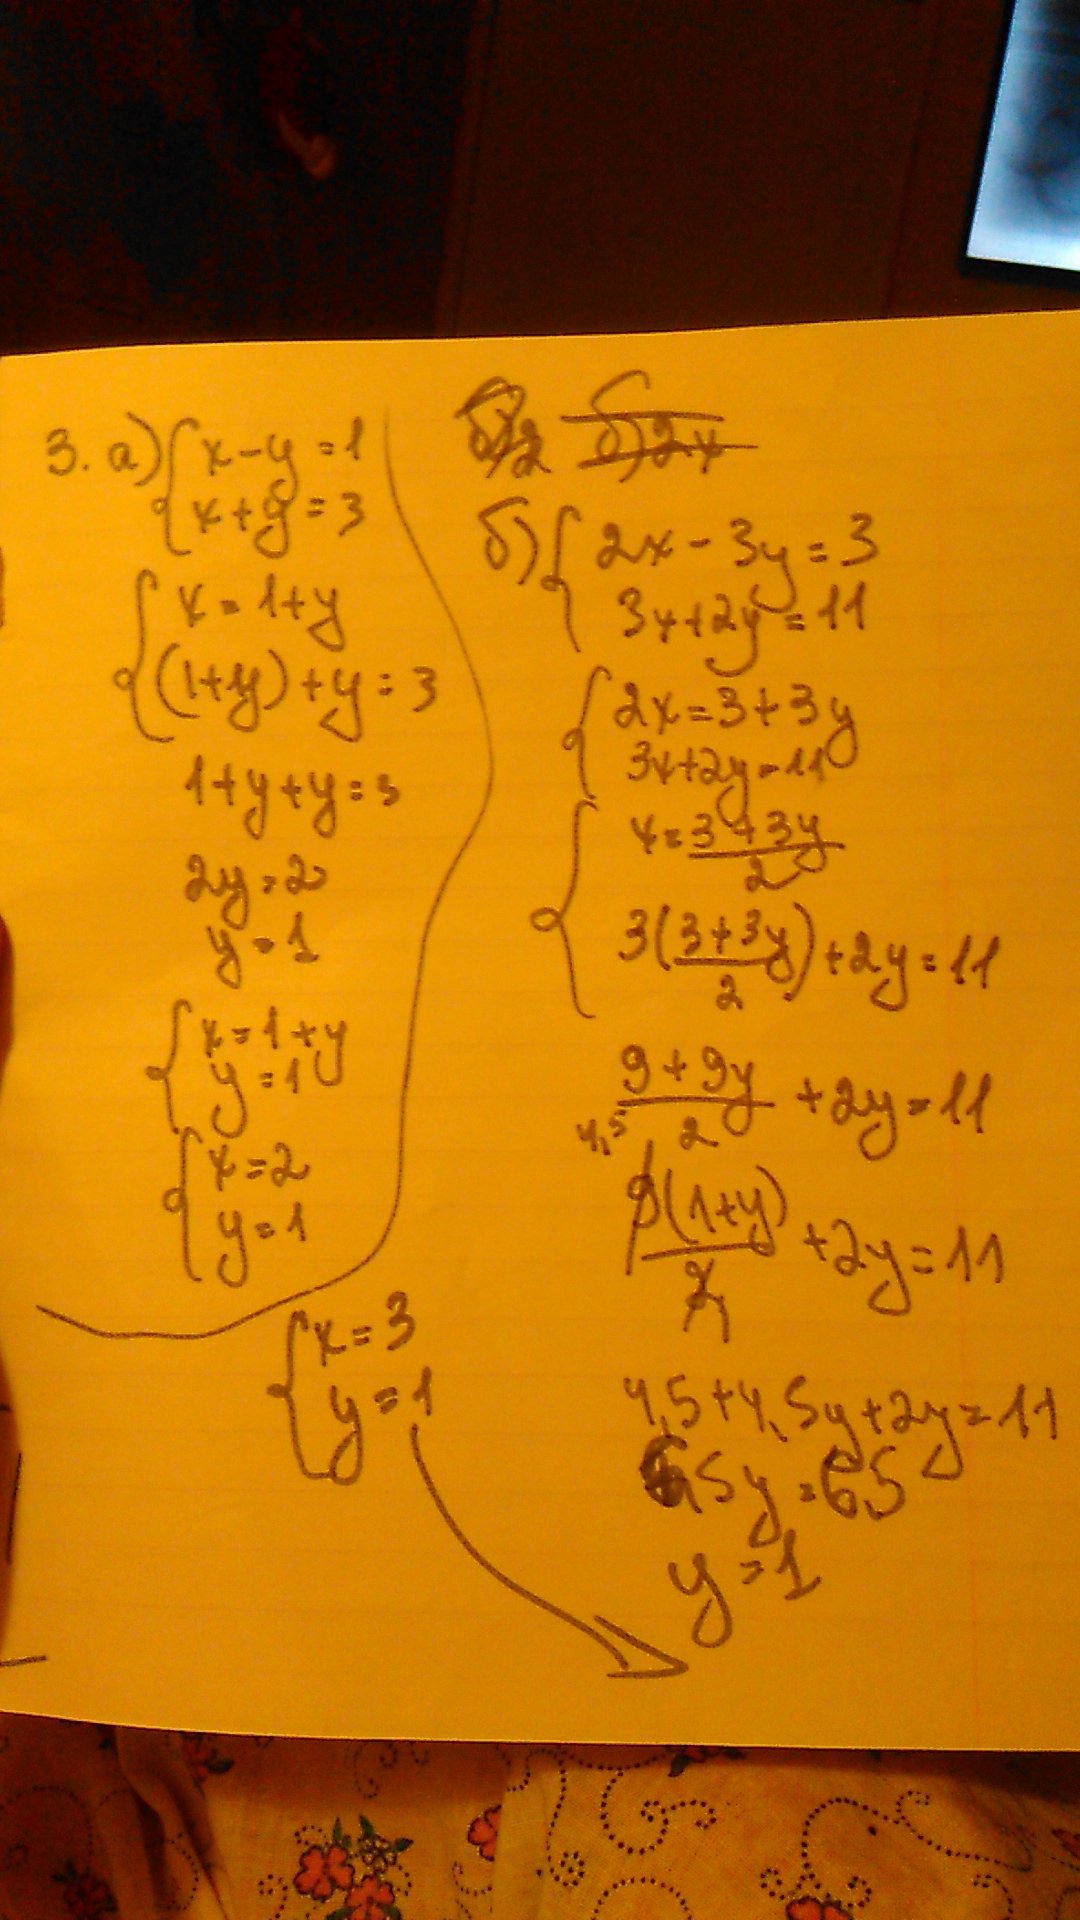 3. а) { x - y = 1
x + y = 3
{ x = 1 + y
(1 + y) + y = 3
1 + y + y = 3
2y = 2
y = 1
{ x = 1 + y
y = 1
{ x = 2
y = 1
б) 2 б) 2x
б) { 2x - 3y = 3
3x + 2y = 11
{ 2x = 3 + 3y
3x + 2y = 11
{ x = (3 + 3y)/2
3((3 + 3y)/2) + 2y = 11
(9 + 9y)/2 + 2y = 11
4,5
9(1 + y)/2 + 2y = 11
4,5 + 4,5y + 2y = 11
6,5y = 6,5
y = 1
{ x = 3
y = 1